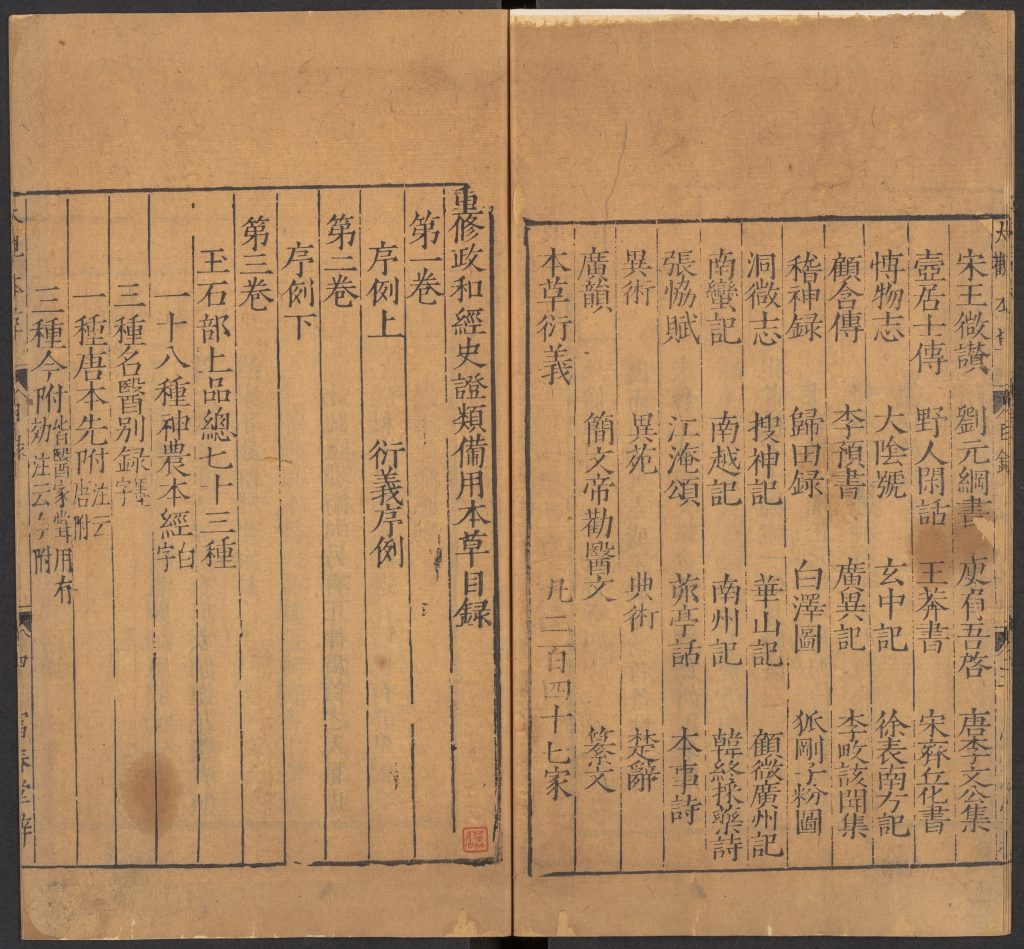 宋王微讃　劉元綱書　庾肩吾啓　唐李文公集
壺居士傳　野人閑話　王莽書　宋齊丘化書
博物志　大陰號　玄中記　徐表南方記
顧含傳　李預書　廣異記　李畋該聞集
稽神録　歸田録　白澤圖　狐剛子粉圖
洞微志　搜神記　華山記　顧微廣州記
南蠻記　南越記　南州記　韓終採藥詩
張恊賦　江淹頌　茆亭話　本事詩
異術　異苑　典術　楚辭
廣韻　簡文帝勸醫文　纂文
本草衍義　凡二百四十七家
重修政和經史證類備用本草目録
第一卷
序例上　衍義序例
第二卷
序例下
第三卷
玉石部上品總七十三種
一十八種神農本經白字
三種名醫别録
一種唐本先附注云唐附
三種今附皆醫家甞用有効注云今附